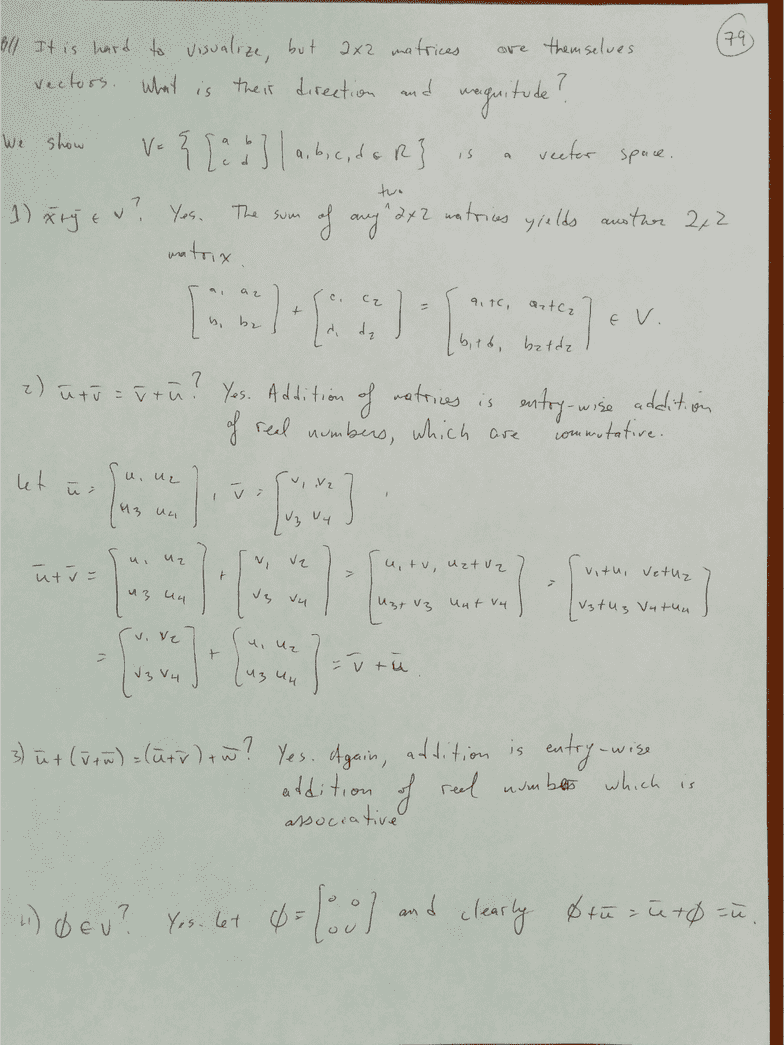 79
B// It is hard to visualize, but 2x2 matrices are themselves
vectors. What is their direction and magnitude?
We show V = { [a b; c d] | a,b,c,d ∈ R } is a vector space.
1) x̄+ȳ ∈ V? Yes. The sum of any two 2x2 matrices yields another 2x2
matrix.
[a₁ a₂; b₁ b₂] + [c₁ c₂; d₁ d₂] = [a₁+c₁ a₂+c₂; b₁+d₁ b₂+d₂] ∈ V.
2) ū+v̄ = v̄+ū? Yes. Addition of matrices is entry-wise addition
of real numbers, which are commutative.
Let ū = [u₁ u₂; u₃ u₄], v̄ = [v₁ v₂; v₃ v₄],
ū+v̄ = [u₁ u₂; u₃ u₄] + [v₁ v₂; v₃ v₄] = [u₁+v₁ u₂+v₂; u₃+v₃ u₄+v₄] = [v₁+u₁ v₂+u₂; v₃+u₃ v₄+u₄]
= [v₁ v₂; v₃ v₄] + [u₁ u₂; u₃ u₄] = v̄+ū.
3) ū+(v̄+w̄) = (ū+v̄)+w̄? Yes. Again, addition is entry-wise
addition of real numbers which is
associative
4) ϕ ∈ V? Yes. Let ϕ = [0 0; 0 0] and clearly ϕ+ū = ū+ϕ = ū.